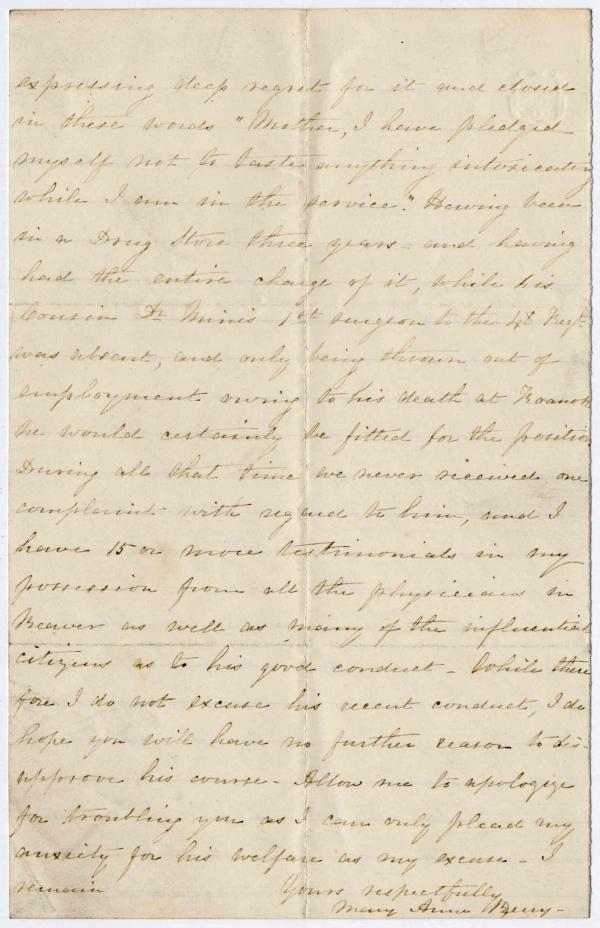 expressing deep regret for it and closed
in these words "Mother, I have pledged
myself not to taste anything intoxicating
while I am in the service." Having been
in a Drug Store three years - and having
had the entire charge of it, while his
Cousin Dr Minis 1st surgeon to the 48 Regt
was absent, and only being thrown out of
employment owing to his death at Roanoke
he would certainly be fitted for the position
During all that time we never received one
complaint with regard to him, and I
have 15 or more testimonials in my
possession from all the physicians in
Beaver as well as many of the influential
citizens as to his good conduct - While there
fore I do not excuse his recent conduct, I do
hope you will have no further reason to dis-
approve his course - Allow me to apologize
for troubling you as I can only plead my
anxiety for his welfare as my excuse - I
remain Yours respectfully
Mary Anne